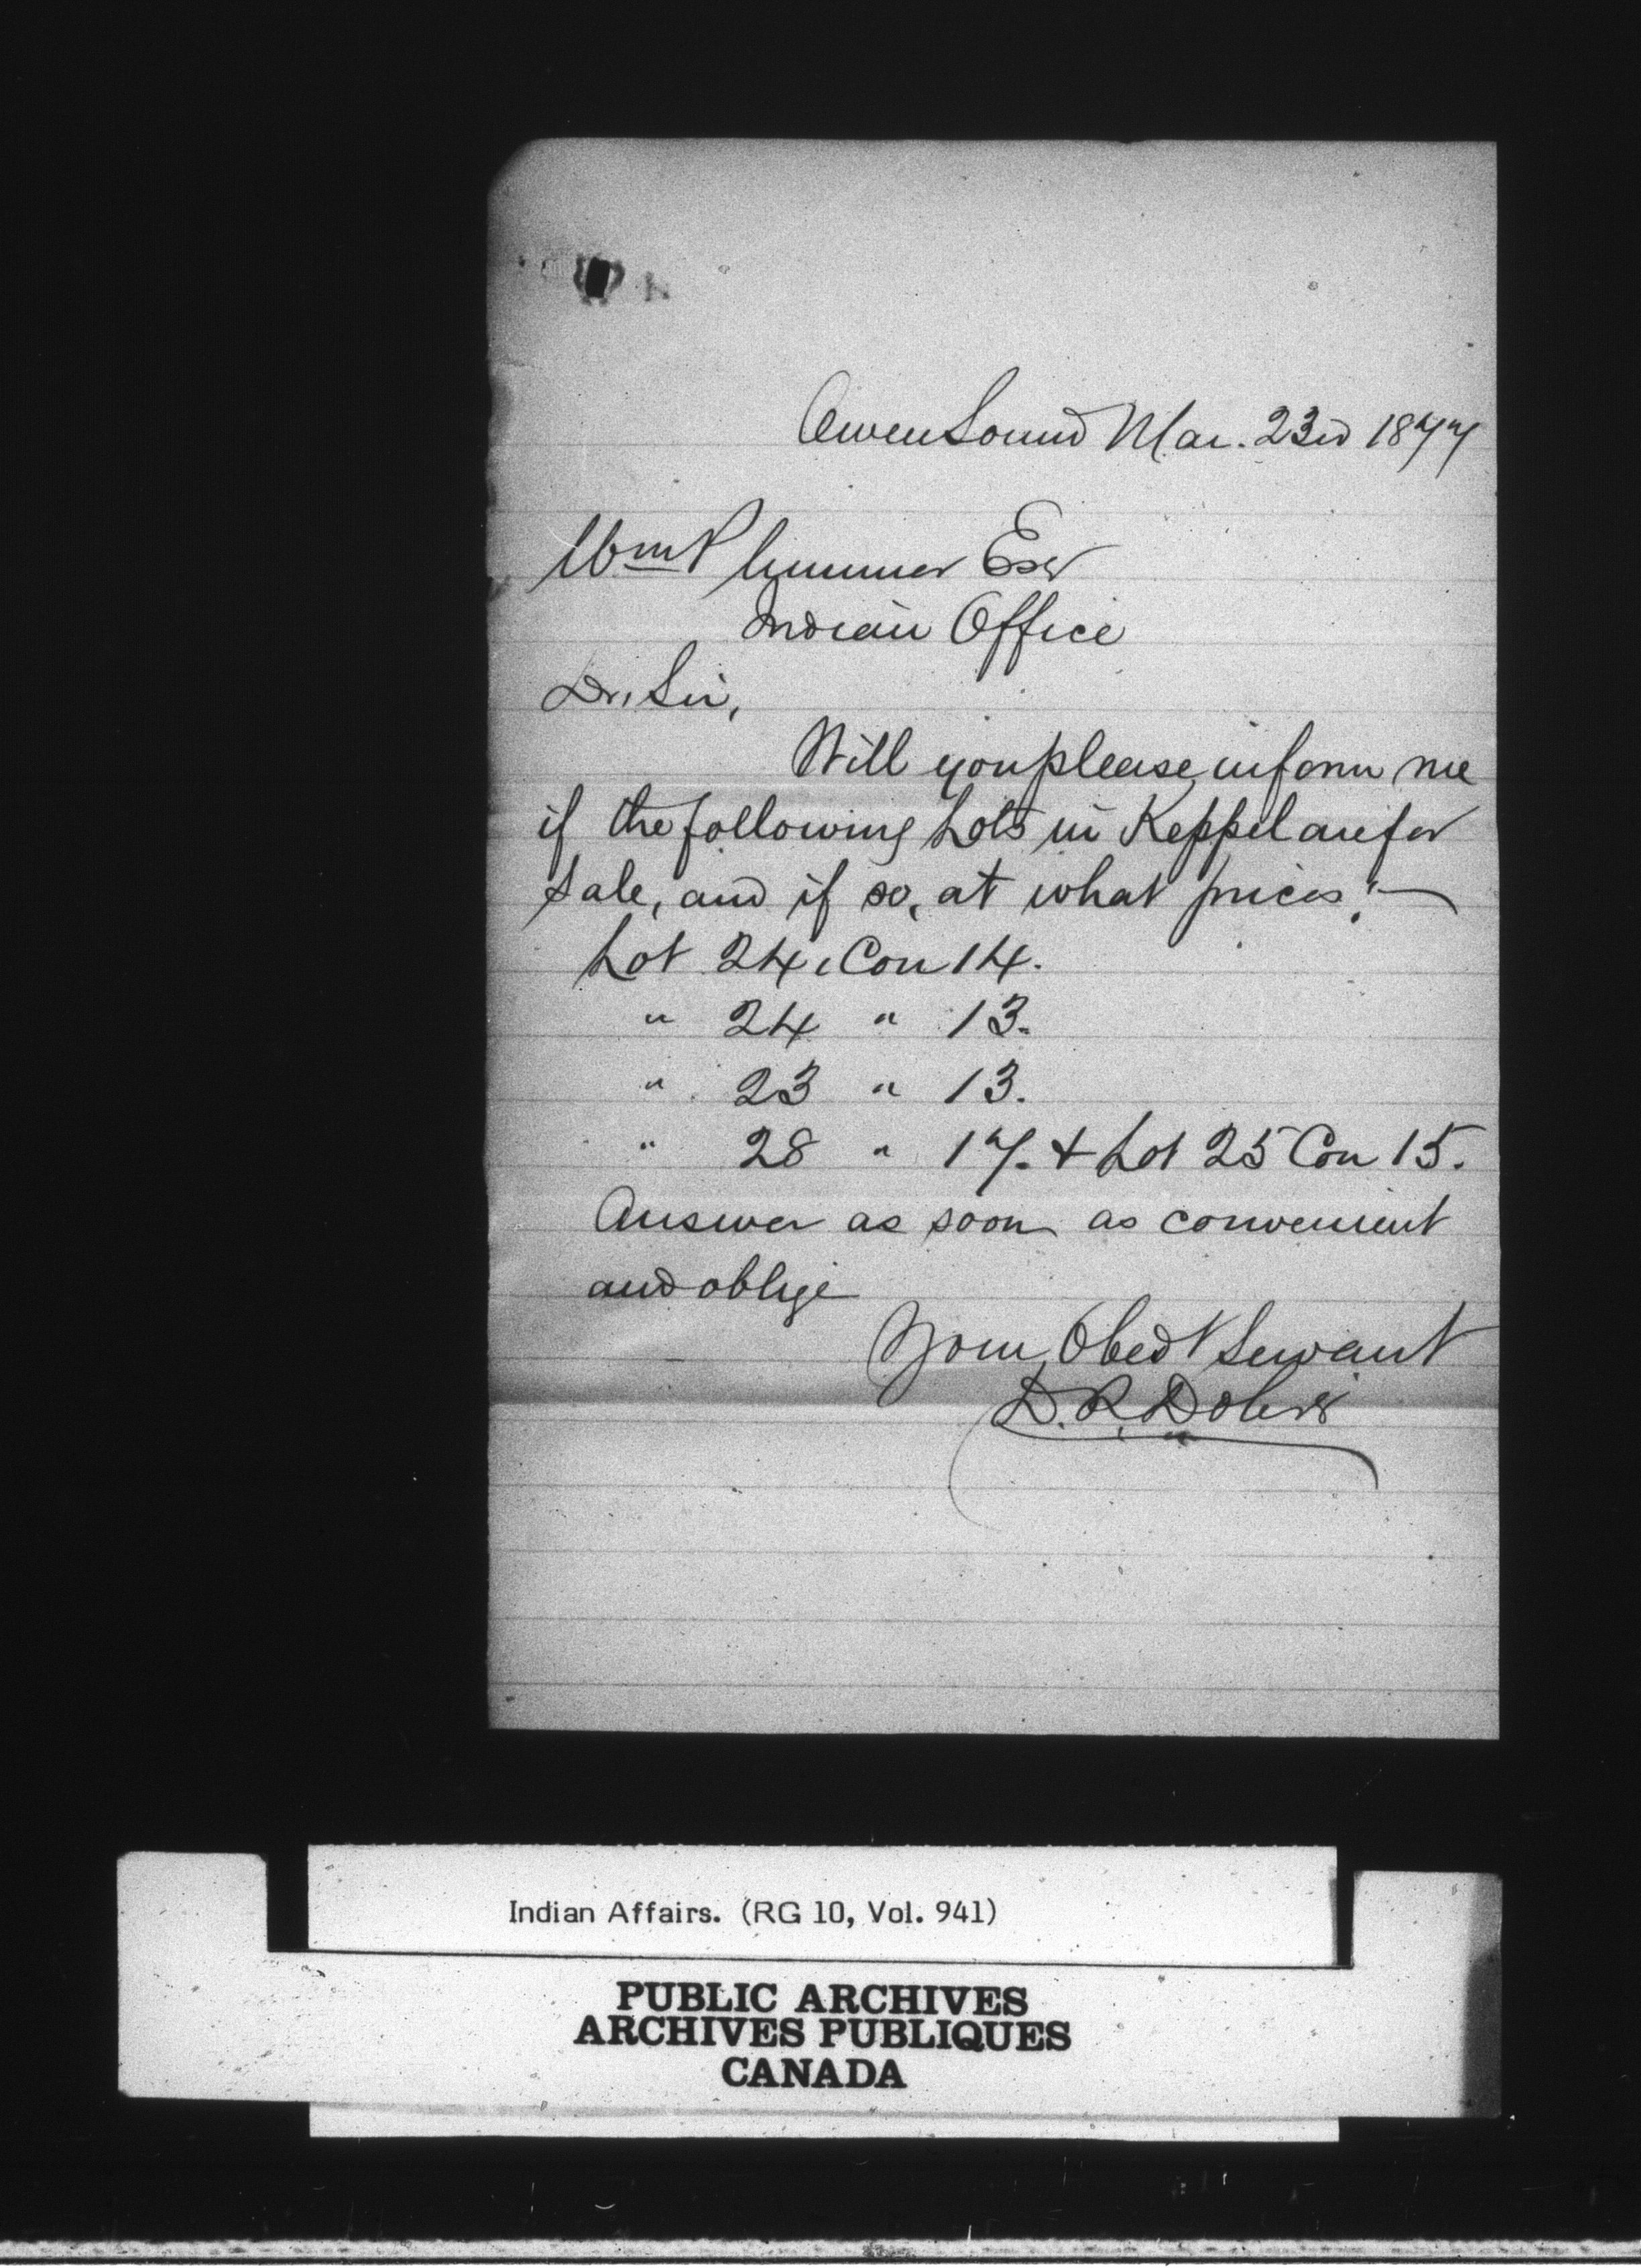 Owen Sound Mar. 23rd 1877
Wm Plummer Esqr
Indian Office
Dr. Sir,
Will you please inform me
if the following Lots in Keppel are for
sale, and if so, at what prices:—
Lot 24, Con 14.
" 24 " 13.
" 23 " 13.
" 28 " 17. & Lot 25 Con 15.
Answer as soon as convenient
and oblige
Your Obedt Servant
D. R. Dobie
Indian Affairs. (RG 10, Vol. 941)
PUBLIC ARCHIVES
ARCHIVES PUBLIQUES
CANADA